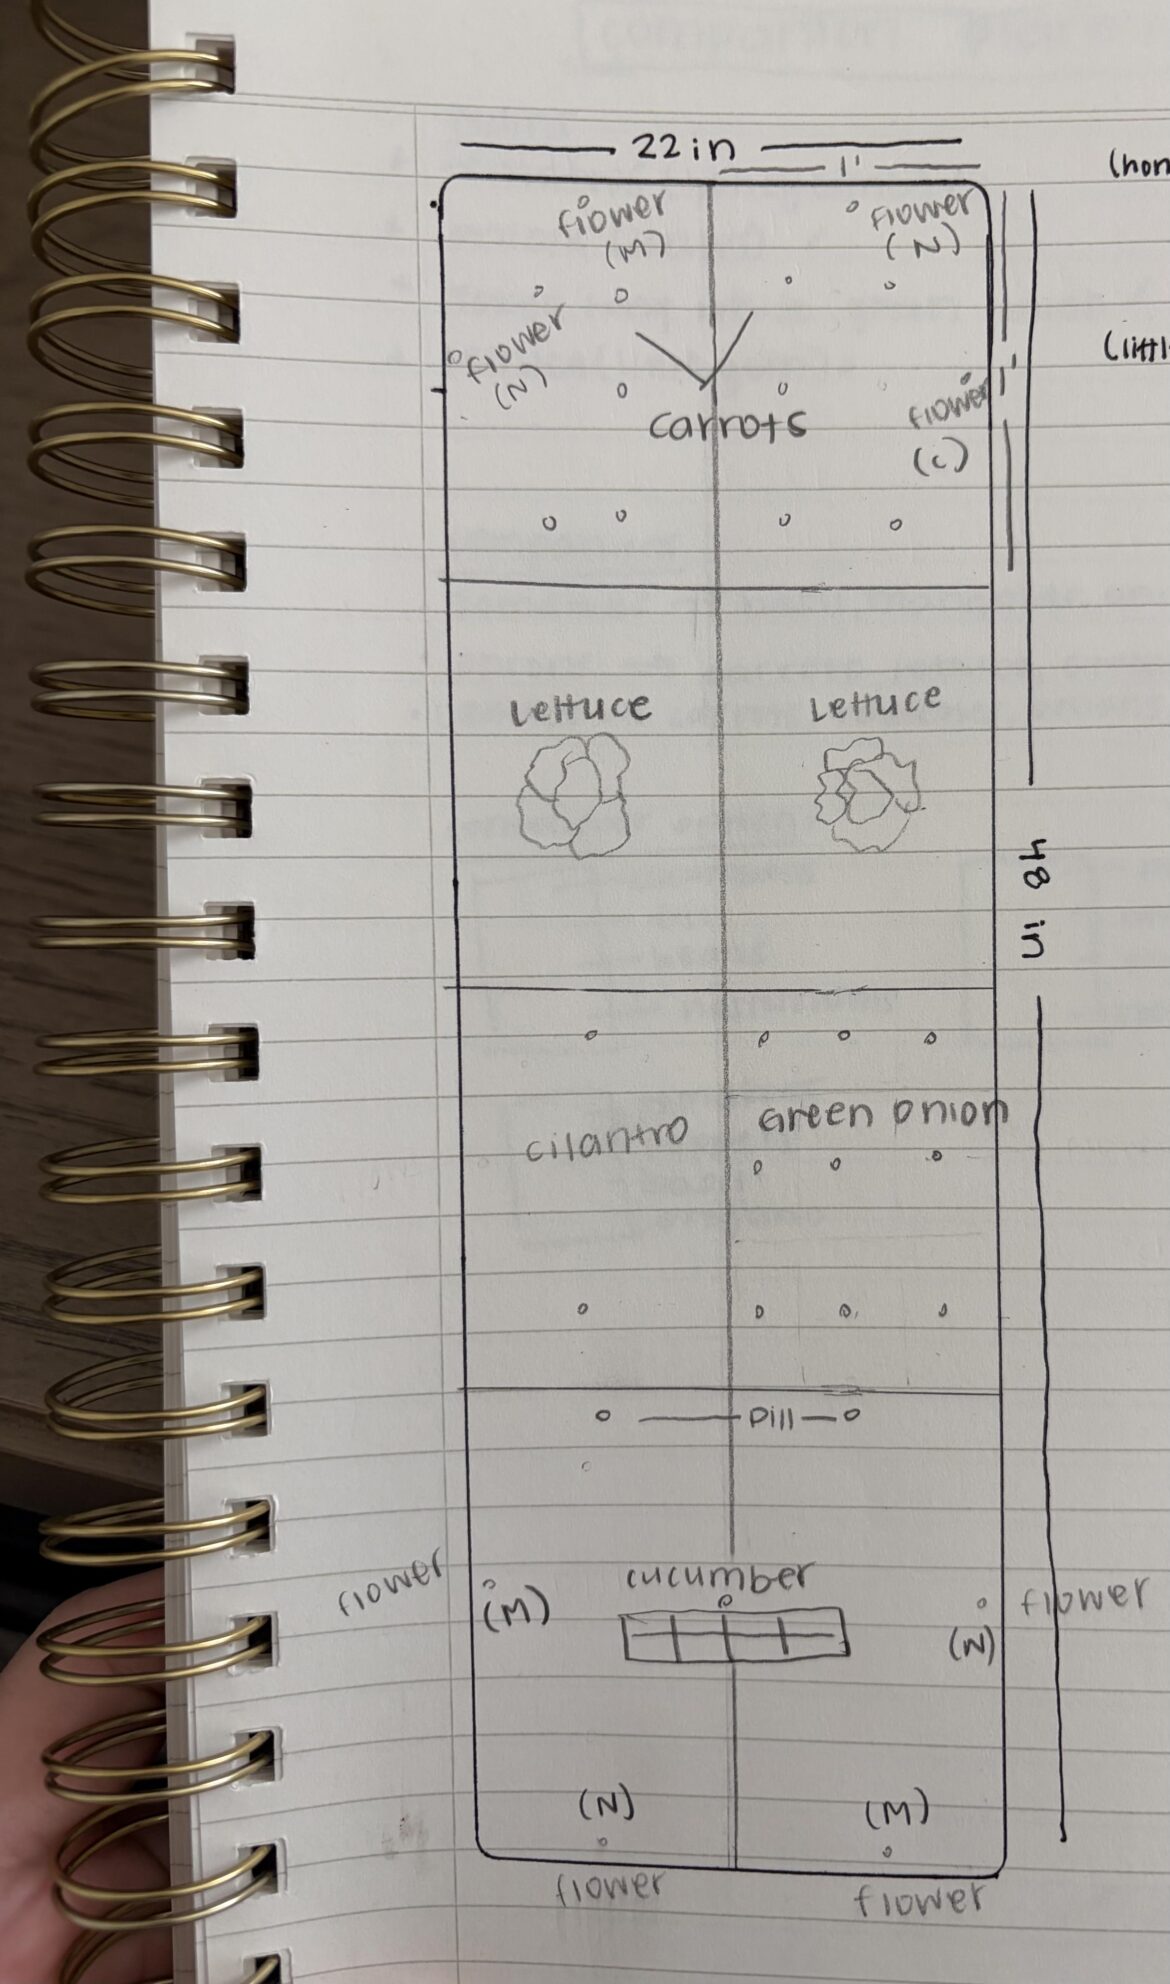 22 in
1'
(hon
flower
(M)
flower
(N)
flower
(N)
1'
(littl
carrots
flower
(c)
Lettuce
Lettuce
48 in
cilantro
Green onion
Dill
flower
(M)
cucumber
flower
(N)
(N)
(M)
flower
flower